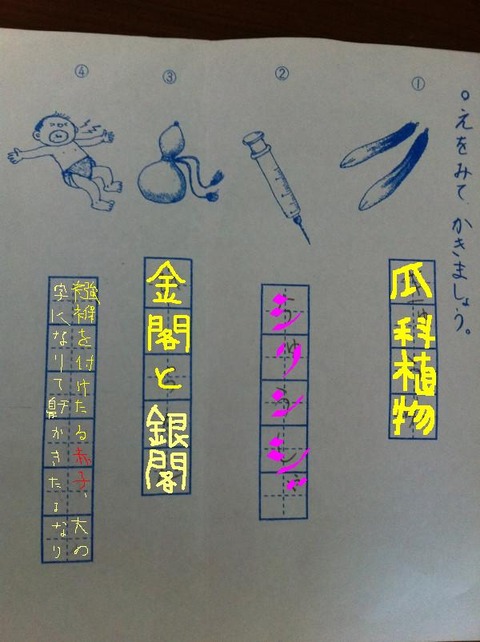 ○えをみて、かきましょう。
①
瓜科植物
②
シリンジ
③
金閣と銀閣
④
襁褓を付けたる赤子、大の
字になりて鼾かきたるなり